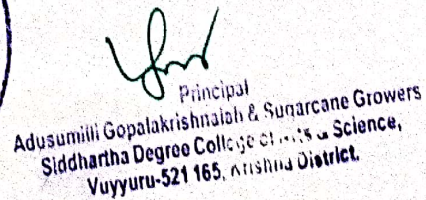 Principal
Adusumilli Gopalakrishnaiah & Sugarcane Growers
Siddhartha Degree College of Arts & Science,
Vuyyuru-521 165, Krishna District.